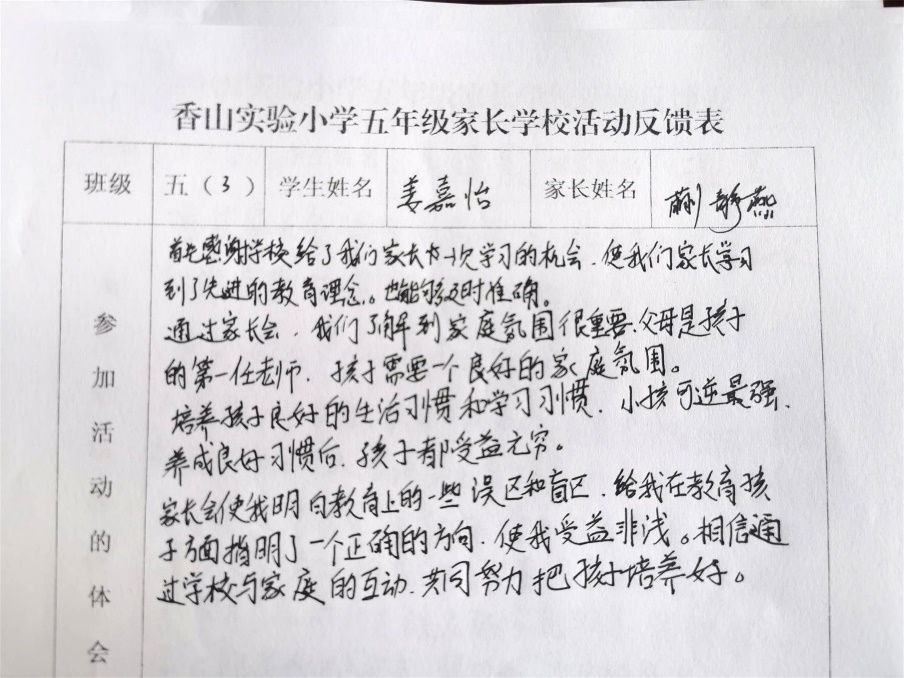 香山实验小学五年级家长学校活动反馈表
班级 五（3） 学生姓名 姜嘉怡 家长姓名
参加活动的体会
首先感谢学校给了我们家长又一次学习的机会、使我们家长学习
到了先进的教育理念。也能够及时准确。
通过家长会、我们了解到家庭氛围很重要、父母是孩子
的第一任老师、孩子需要一个良好的家庭氛围。
培养孩子良好的生活习惯和学习习惯、小孩可逆最强、
养成良好习惯后、孩子都受益无穷。
家长会使我明白教育上的一些误区和盲区、给我在教育孩
子方面指明了一个正确的方向、使我受益非浅。相信通
过学校与家庭的互动、共同努力把孩子培养好。